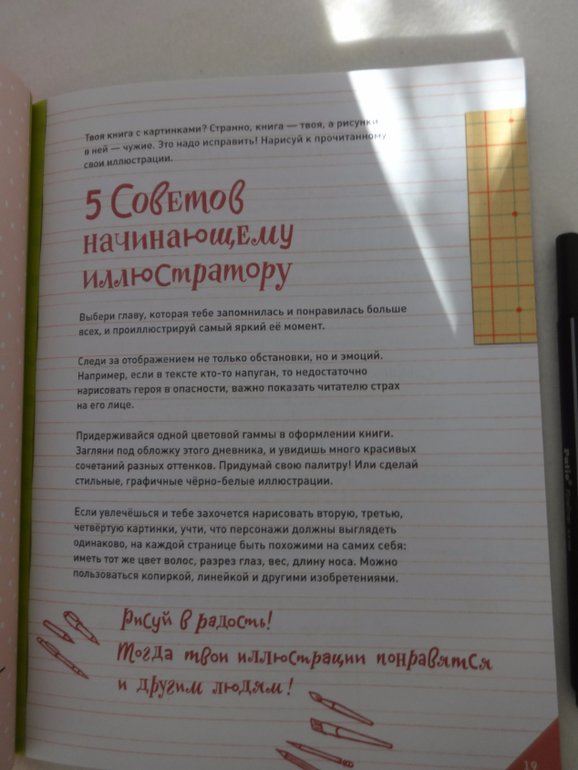 Твоя книга с картинками? Странно, книга — твоя, а рисунки
в ней — чужие. Это надо исправить! Нарисуй к прочитанному
свои иллюстрации.
5 Советов
начинающему
иллюстратору
Выбери главу, которая тебе запомнилась и понравилась больше
всех, и проиллюстрируй самый яркий её момент.
Следи за отображением не только обстановки, но и эмоций.
Например, если в тексте кто-то напуган, то недостаточно
нарисовать героя в опасности, важно показать читателю страх
на его лице.
Придерживайся одной цветовой гаммы в оформлении книги.
Загляни под обложку этого дневника, и увидишь много красивых
сочетаний разных оттенков. Придумай свою палитру! Или сделай
стильные, графичные чёрно-белые иллюстрации.
Если увлечёшься и тебе захочется нарисовать вторую, третью,
четвёртую картинки, учти, что персонажи должны выглядеть
одинаково, на каждой странице быть похожими на самих себя:
иметь тот же цвет волос, разрез глаз, вес, длину носа. Можно
пользоваться копиркой, линейкой и другими изобретениями.
Рисуй в радость!
Тогда твои иллюстрации понравятся
и другим людям!
19